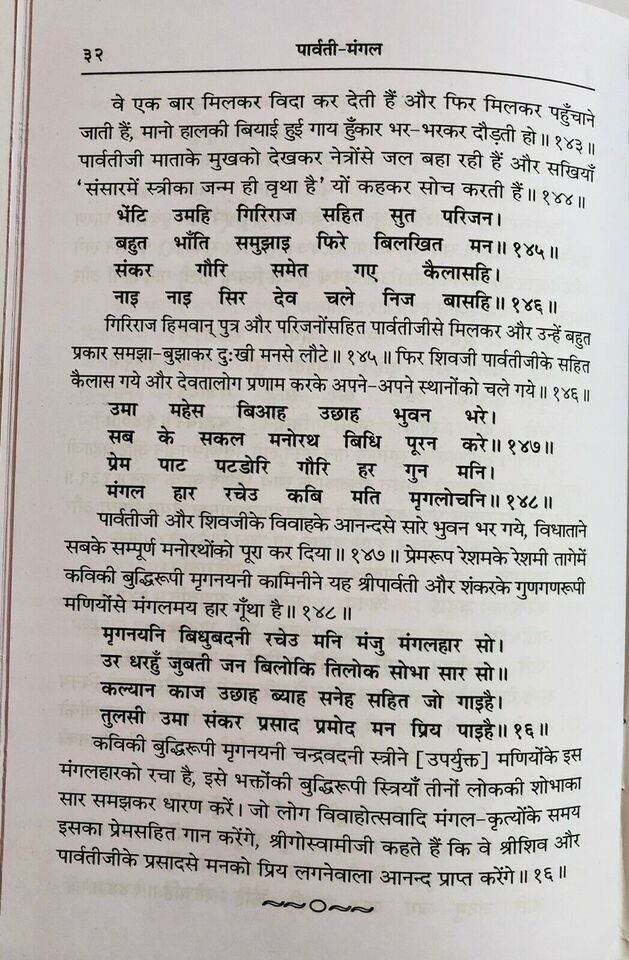 ३२ पार्वती-मंगल
वे एक बार मिलकर विदा कर देती हैं और फिर मिलकर पहुँचाने
जाती हैं, मानो हालकी बियाई हुई गाय हुँकार भर-भरकर दौड़ती हो॥१४३॥
पार्वतीजी माताके मुखको देखकर नेत्रोंसे जल बहा रही हैं और सखियाँ
‘संसारमें स्त्रीका जन्म ही वृथा है’ यों कहकर सोच करती हैं॥१४४॥
भेंटि उमहि गिरिराज सहित सुत परिजन।
बहुत भाँति समुझाइ फिरे बिलखित मन॥१४५॥
संकर गौरि समेत गए कैलासहि।
नाइ नाइ सिर देव चले निज बासहि॥१४६॥
गिरिराज हिमवान् पुत्र और परिजनोंसहित पार्वतीजीसे मिलकर और उन्हें बहुत
प्रकार समझा-बुझाकर दुःखी मनसे लौटे॥१४५॥ फिर शिवजी पार्वतीजीके सहित
कैलास गये और देवतालोग प्रणाम करके अपने-अपने स्थानोंको चले गये॥१४६॥
उमा महेस बिआह उछाह भुवन भरे।
सब के सकल मनोरथ बिधि पूरन करे॥१४७॥
प्रेम पाट पटडोरि गौरि हर गुन मनि।
मंगल हार रचेउ कबि मति मृगलोचनि॥१४८॥
पार्वतीजी और शिवजीके विवाहके आनन्दसे सारे भुवन भर गये, विधाताने
सबके सम्पूर्ण मनोरथोंको पूरा कर दिया॥१४७॥ प्रेमरूप रेशमके रेशमी तागेमें
कविकी बुद्धिरूपी मृगनयनी कामिनीने यह श्रीपार्वती और शंकरके गुणगणरूपी
मणियोंसे मंगलमय हार गूँथा है॥१४८॥
मृगनयनि बिधुबदनी रचेउ मनि मंजु मंगलहार सो।
उर धरहुँ जुबती जन बिलोकि तिलोक सोभा सार सो॥
कल्यान काज उछाह ब्याह सनेह सहित जो गाइहै।
तुलसी उमा संकर प्रसाद प्रमोद मन प्रिय पाइहै॥१६॥
कविकी बुद्धिरूपी मृगनयनी चन्द्रवदनी स्त्रीने [उपर्युक्त] मणियोंके इस
मंगलहारको रचा है, इसे भक्तोंकी बुद्धिरूपी स्त्रियाँ तीनों लोककी शोभाका
सार समझकर धारण करें। जो लोग विवाहोत्सवादि मंगल-कृत्योंके समय
इसका प्रेमसहित गान करेंगे, श्रीगोस्वामीजी कहते हैं कि वे श्रीशिव और
पार्वतीजीके प्रसादसे मनको प्रिय लगनेवाला आनन्द प्राप्त करेंगे॥१६॥